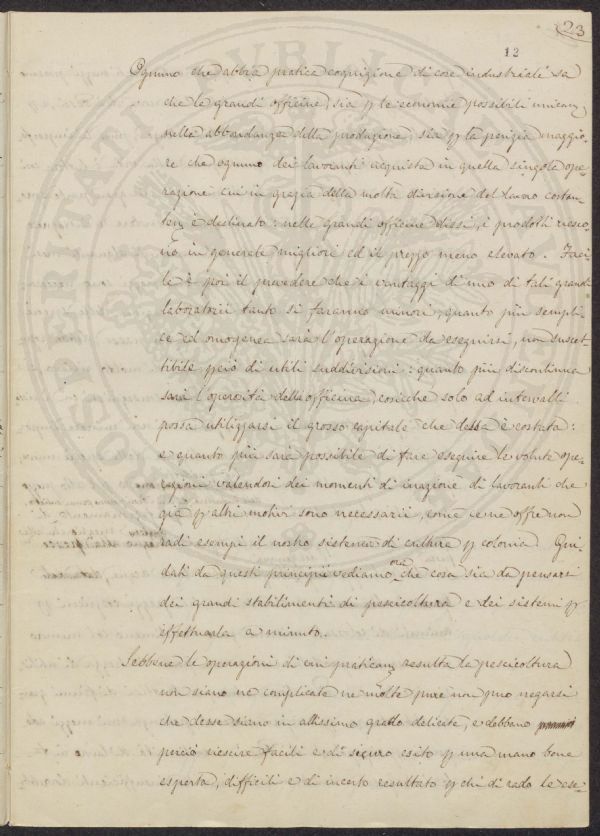 23
12
Ognuno che abbia pratica cognizione di cose industriali sa
che le grandi officine, sia p le economie possibili unicam
sulle abbondanze della produzione, sia p la perizia maggio-
re che ognuno dei lavoranti acquista in quella singola ope-
razione cui in grazia della molta divisione del lavoro costan-
tem è destinato: nelle grandi officine dissi, i prodotti riesco-
no in generale migliori ed il prezzo meno elevato. Faci-
le è poi il prevedere che i vantaggi di uno di tali grandi
laboratorii tanto si faranno minori, quanto più sempli-
ce ed omogenea sarà l'operazione da eseguirsi, non suscet-
tibile p ciò di utili suddivisioni: quanto più discontinua
sarà l'operosità della officina, cosicche solo ad intervalli
possa utilizzarsi il grosso capitale che dessa è costata:
e quanto più sarà possibile di fare eseguire le volute ope-
razioni valendosi dei momenti di inazione di lavoranti che
già p altri motivi sono necessarii, come ce ne offre non
radi esempi il nostro sistema di culture p colonia. Gui-
dati da questi principii vediamo ora che cosa sia da pensarsi
dei grandi stabilimenti di pescicoltura e dei sistemi p
effettuarla a minuto.
Sebbene le operazioni di cui praticam resulta la pescicoltura
non siano ne complicate ne molte pure non può negarsi
che desse siano in altissimo grado delicate, e debbono
perciò riescire facili e di sicuro esito p una mano bene
esperta, difficili e di incerto resultato p chi di rado le ese-